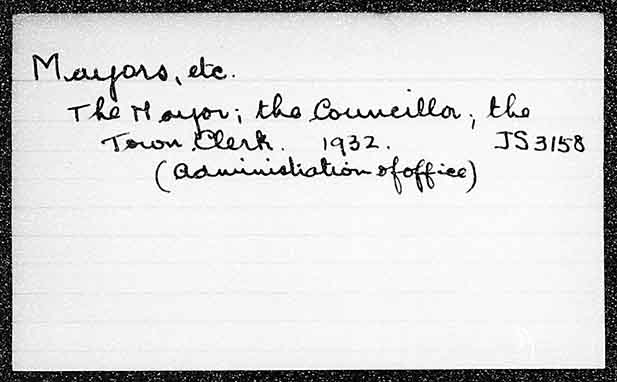 Mayors, etc.
The Mayor; the Councillor; the
Town Clerk. 1932. JS3158
(administration of office)